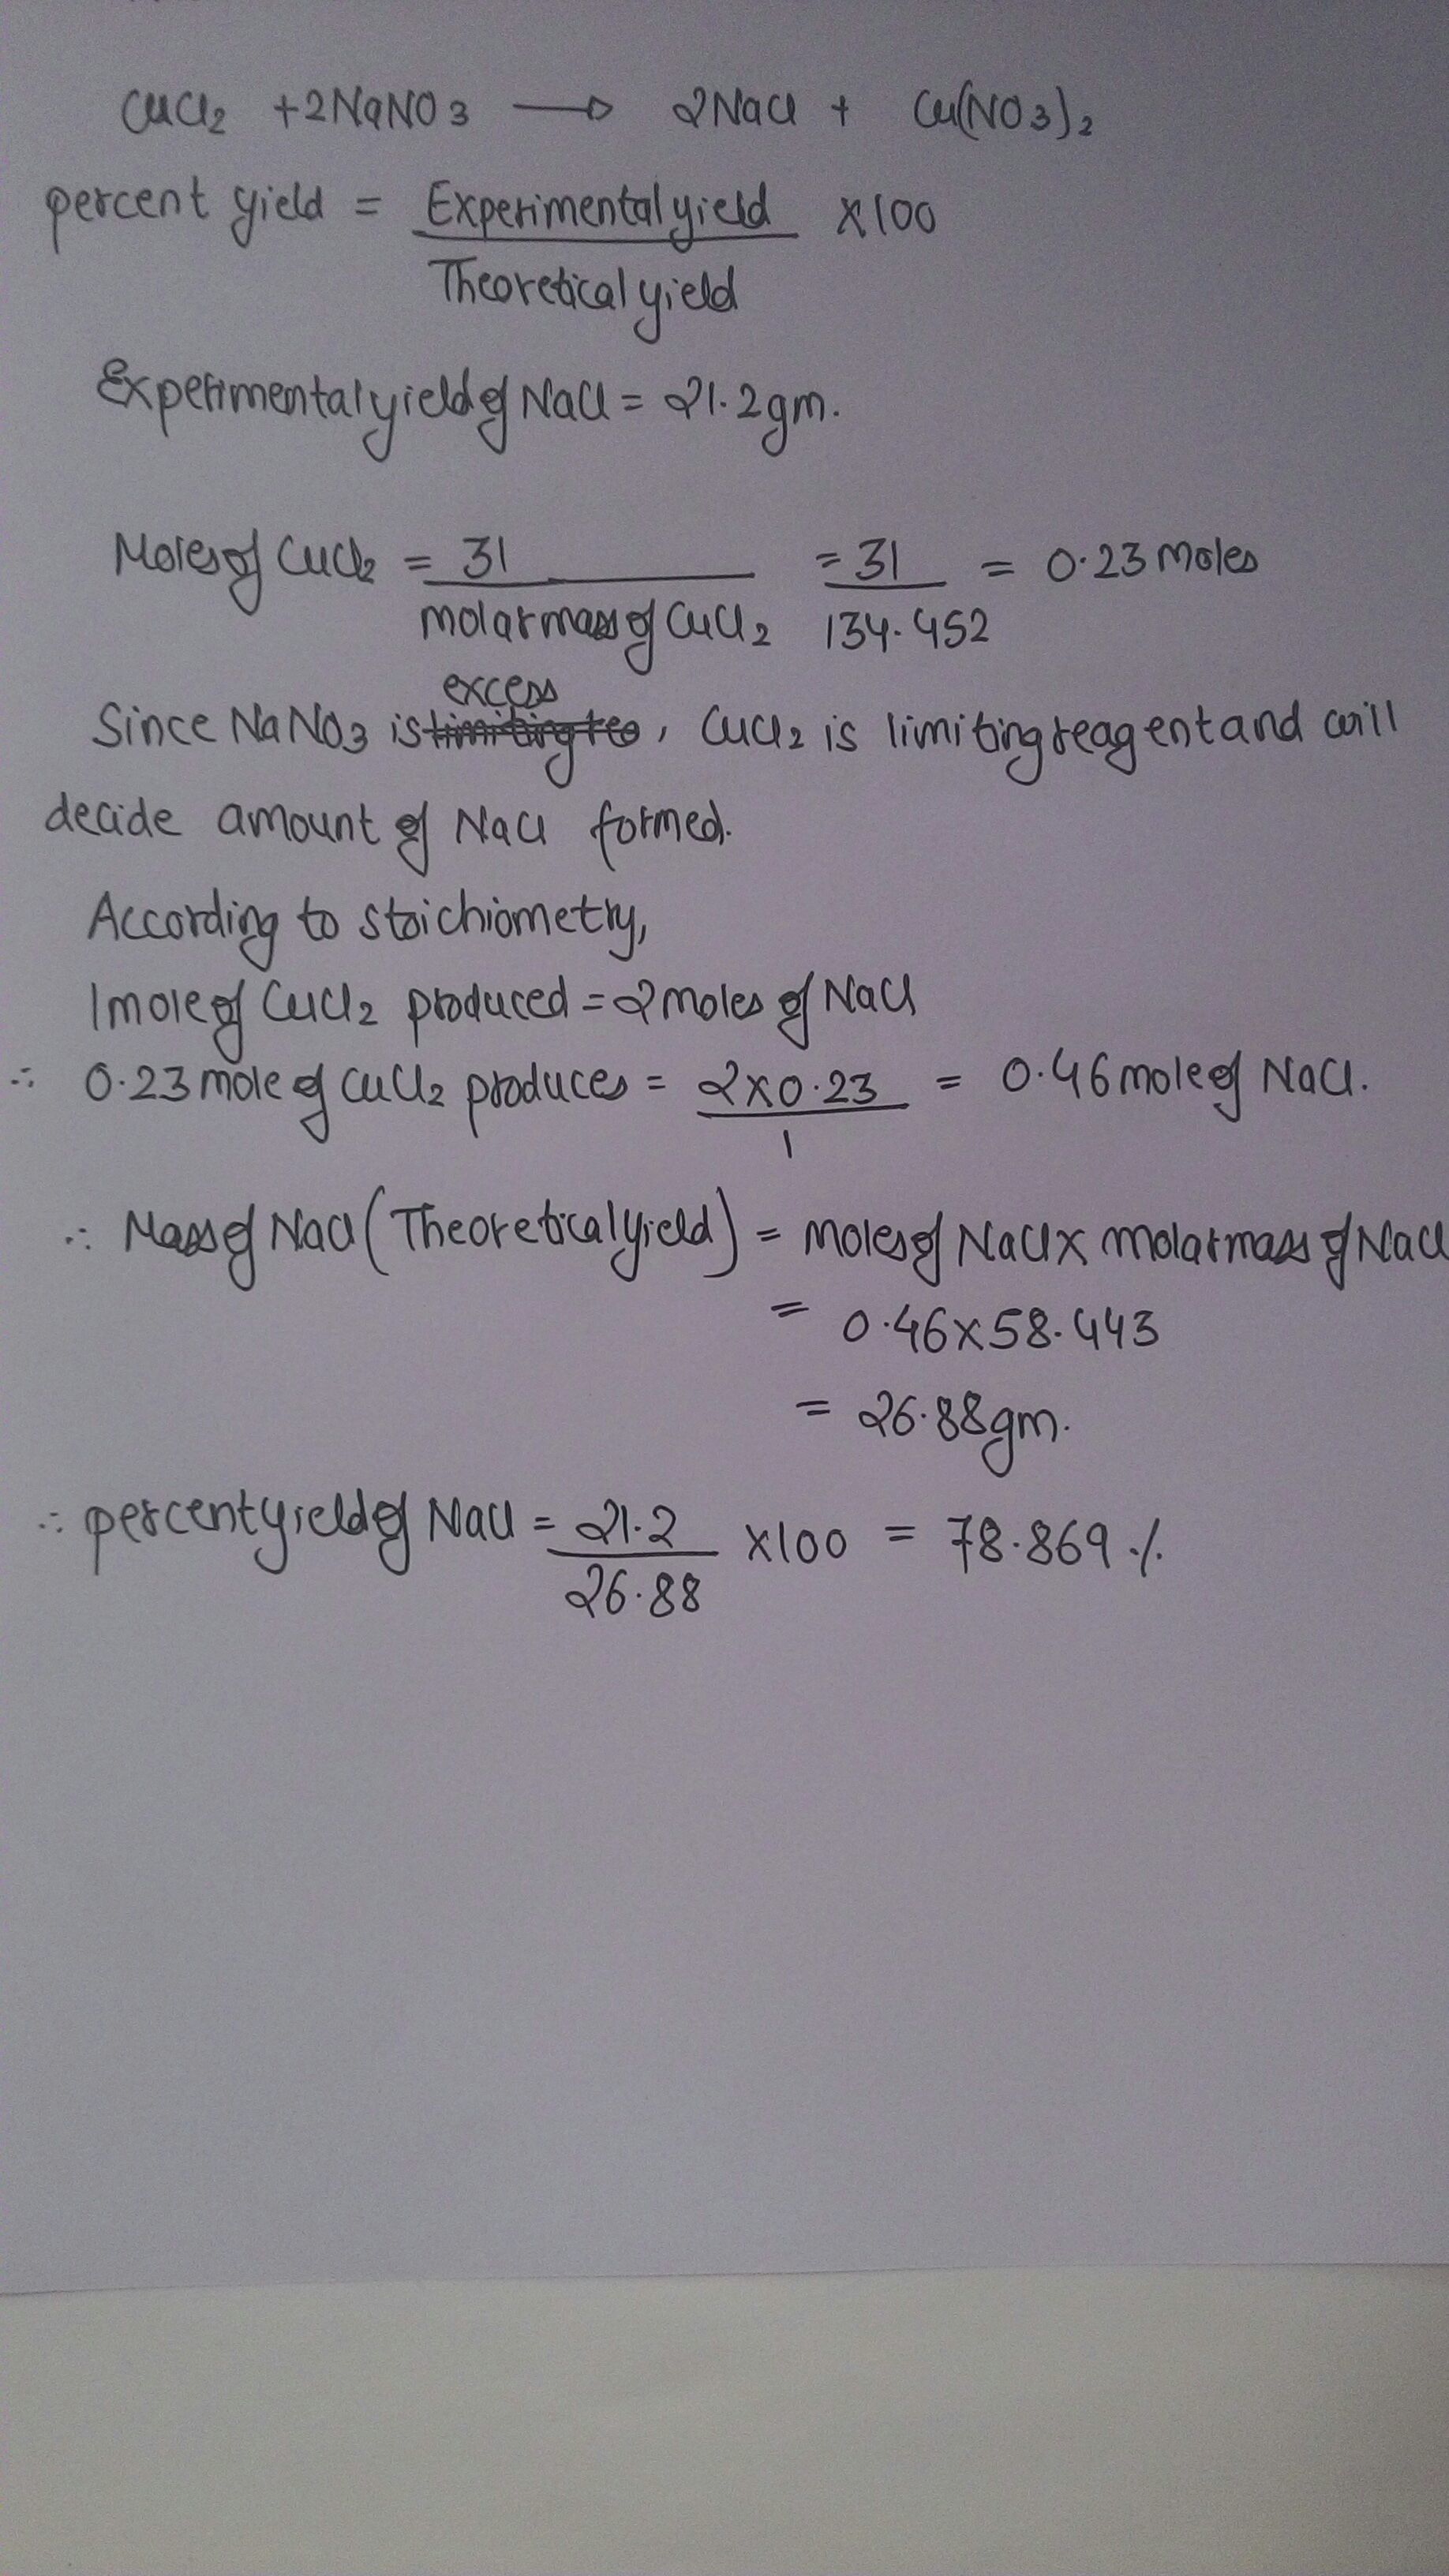 CuCl2 + 2NaNO3 → 2NaCl + Cu(NO3)2
percent yield = Experimental yield / Theoretical yield × 100
Experimental yield of NaCl = 21.2 gm.
Moles of CuCl2 = 31 / molar mass of CuCl2 = 31 / 134.452 = 0.23 moles
Since NaNO3 is excess, CuCl2 is limiting reagent and will
decide amount of NaCl formed.
According to stoichiometry,
1 mole of CuCl2 produced = 2 moles of NaCl
∴ 0.23 mole of CuCl2 produces = 2×0.23 / 1 = 0.46 mole of NaCl.
∴ Mass of NaCl (Theoretical yield) = Moles of NaCl × molar mass of NaCl
= 0.46×58.443
= 26.88 gm.
∴ percent yield of NaCl = 21.2 / 26.88 ×100 = 78.869 %